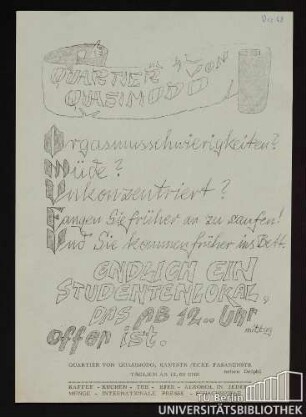 QUARTIER VON
QUASIMODO
Orgasmusschwierigkeiten?
Müde?
Unkonzentriert?
Fangen Sie früher an zu saufen!
Und Sie kommen früher ins Bett.
ENDLICH EIN
STUDENTENLOKAL,
DAS AB 12.00 Uhr
mittags
offen ist.
QUARTIER VON QUASIMODO, KANTSTR./ECKE FASANENSTR.
TÄGLICH AB 12.00 UHR neben Delphi
KAFFEE - KUCHEN - TEE - BIER - ALKOHOL IN JEDER
MENGE - INTERNATIONALE PRESSE -
FU Berlin
UNIVERSITÄTSBIBLIOTHEK